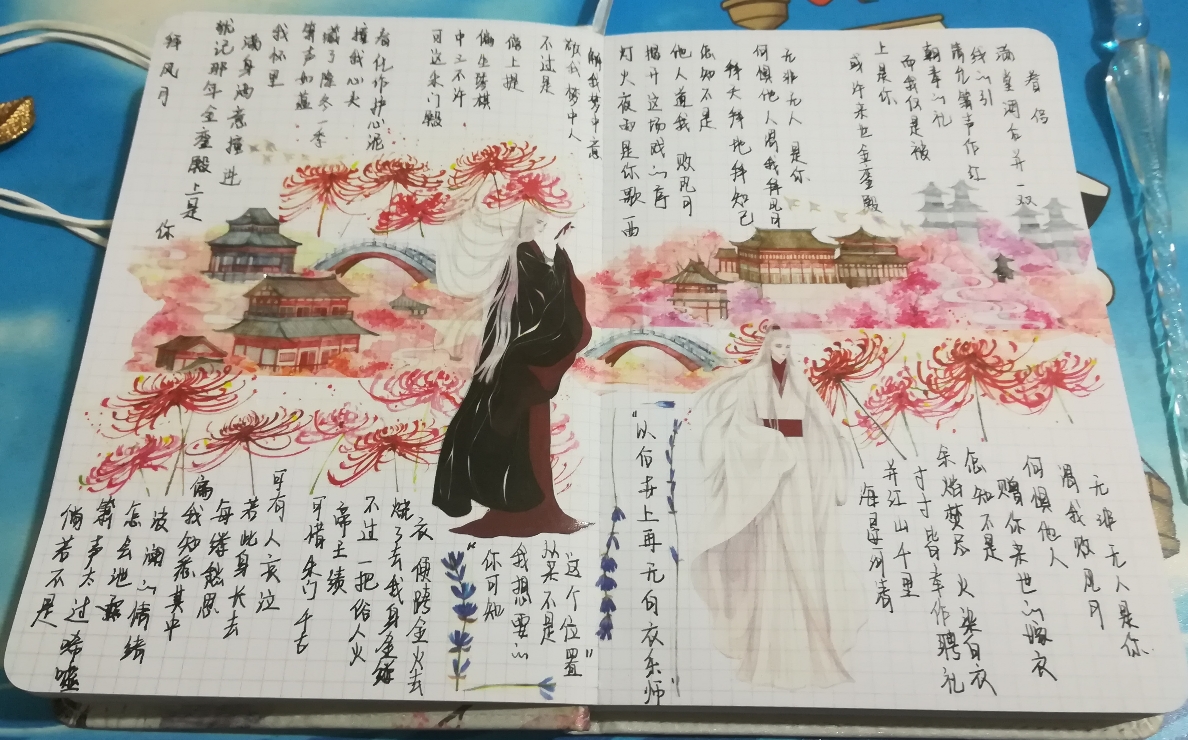 眷侣
满堂酒合并一双
线为引
箫声作红
而我仅是被
上是你
或许来世金銮殿
无非无人是你
何惧他人渴我拜风月
拜天拜地拜知己
怎知不是
他人道我 败风月
揭开这场戏的序
灯火夜雨是你歌一曲
解我梦中意
敬我梦中人
不过是
中 不许
可这朱门殿
若化作护心泥
撞我心头
藏了隆冬一季
箫声如蕴
我怀里
满身酒意撞进
犹记那年金銮殿上是
你
拜风月
无非无人是你
渴我败风月
何惧他人
赠你来世的嫁衣
怎知不是 火染白衣
余焰焚尽
寸寸皆幸作聘礼
并江山千里
海晏河清
世上再无白衣乐师"
这个位置"
从来不是
我想要的
"你可知
衣 金火去
烧了去我身金缕
不过一把俗人火
帝王绩
可惜朱门千古
可有人哀泣
若此身长去
每缕愁思
偏我知卷其中
波澜的情绪
怎会泄露
箫声太过唏嘘
倘若不是